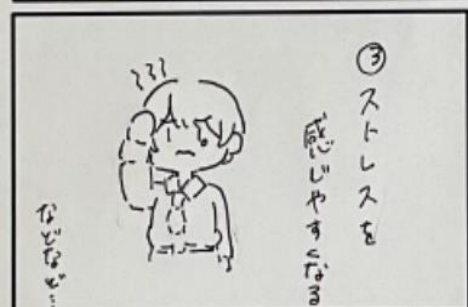 ③ストレスを
感じやすくなる
などなど…